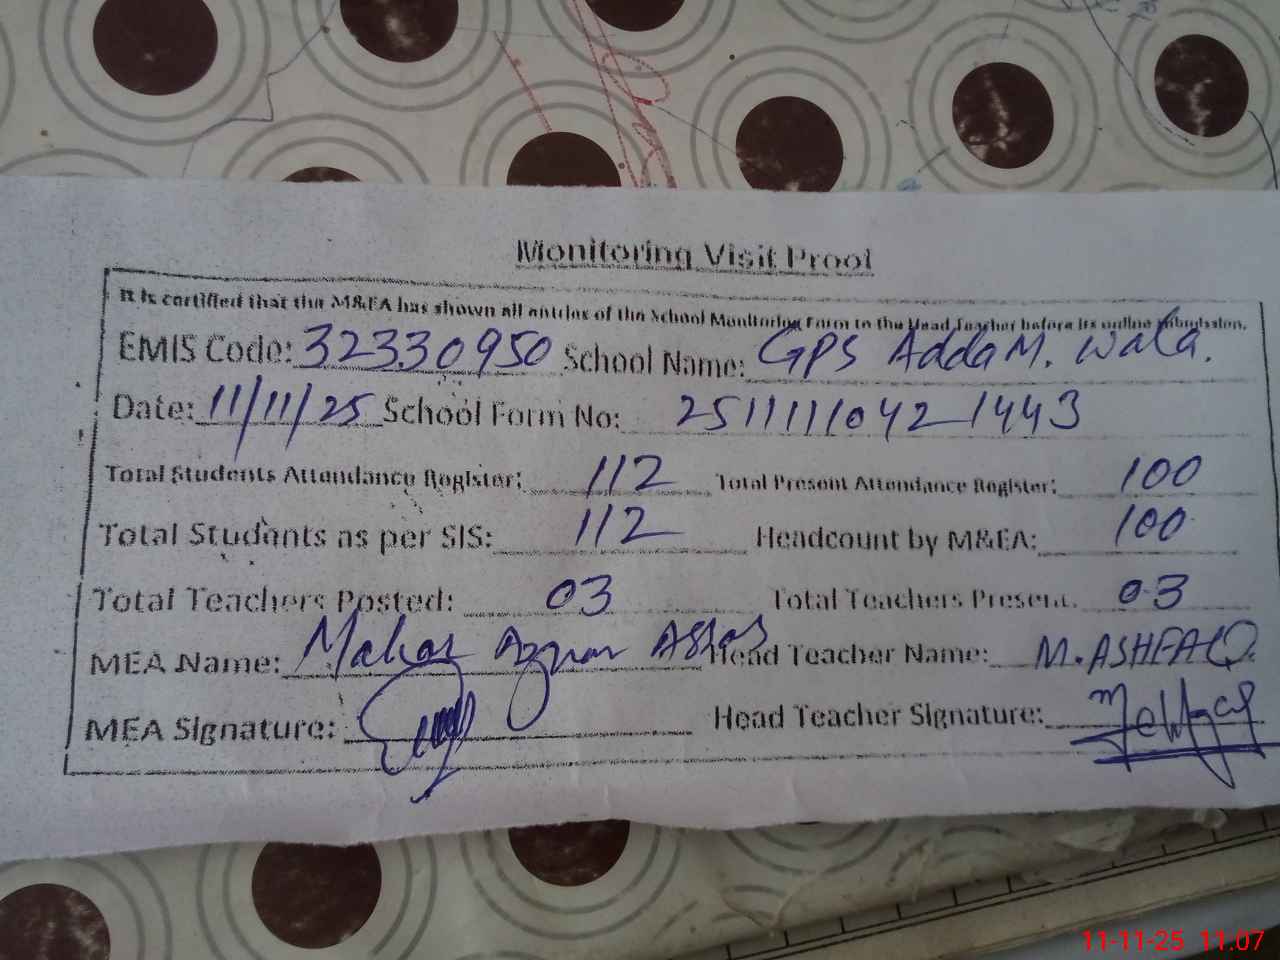 Monitoring Visit Proof
It is certified that the M&EA has shown all entries of the School Monitoring Form to the Head Teacher before its online submission.
EMIS Code: 32330950 School Name: GPS Adda M. Wala.
Date: 11/11/25 School Form No: 2511111042 1443
Total Students Attendance Register: 112 Total Present Attendance Register: 100
Total Students as per SIS: 112 Headcount by M&EA: 100
Total Teachers Posted: 03 Total Teachers Present. 03
MEA Name: Head Teacher Name: M. ASHFAQ
MEA Signature: Head Teacher Signature:
11-11-25 11.07